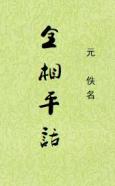 元 佚名
全相平話